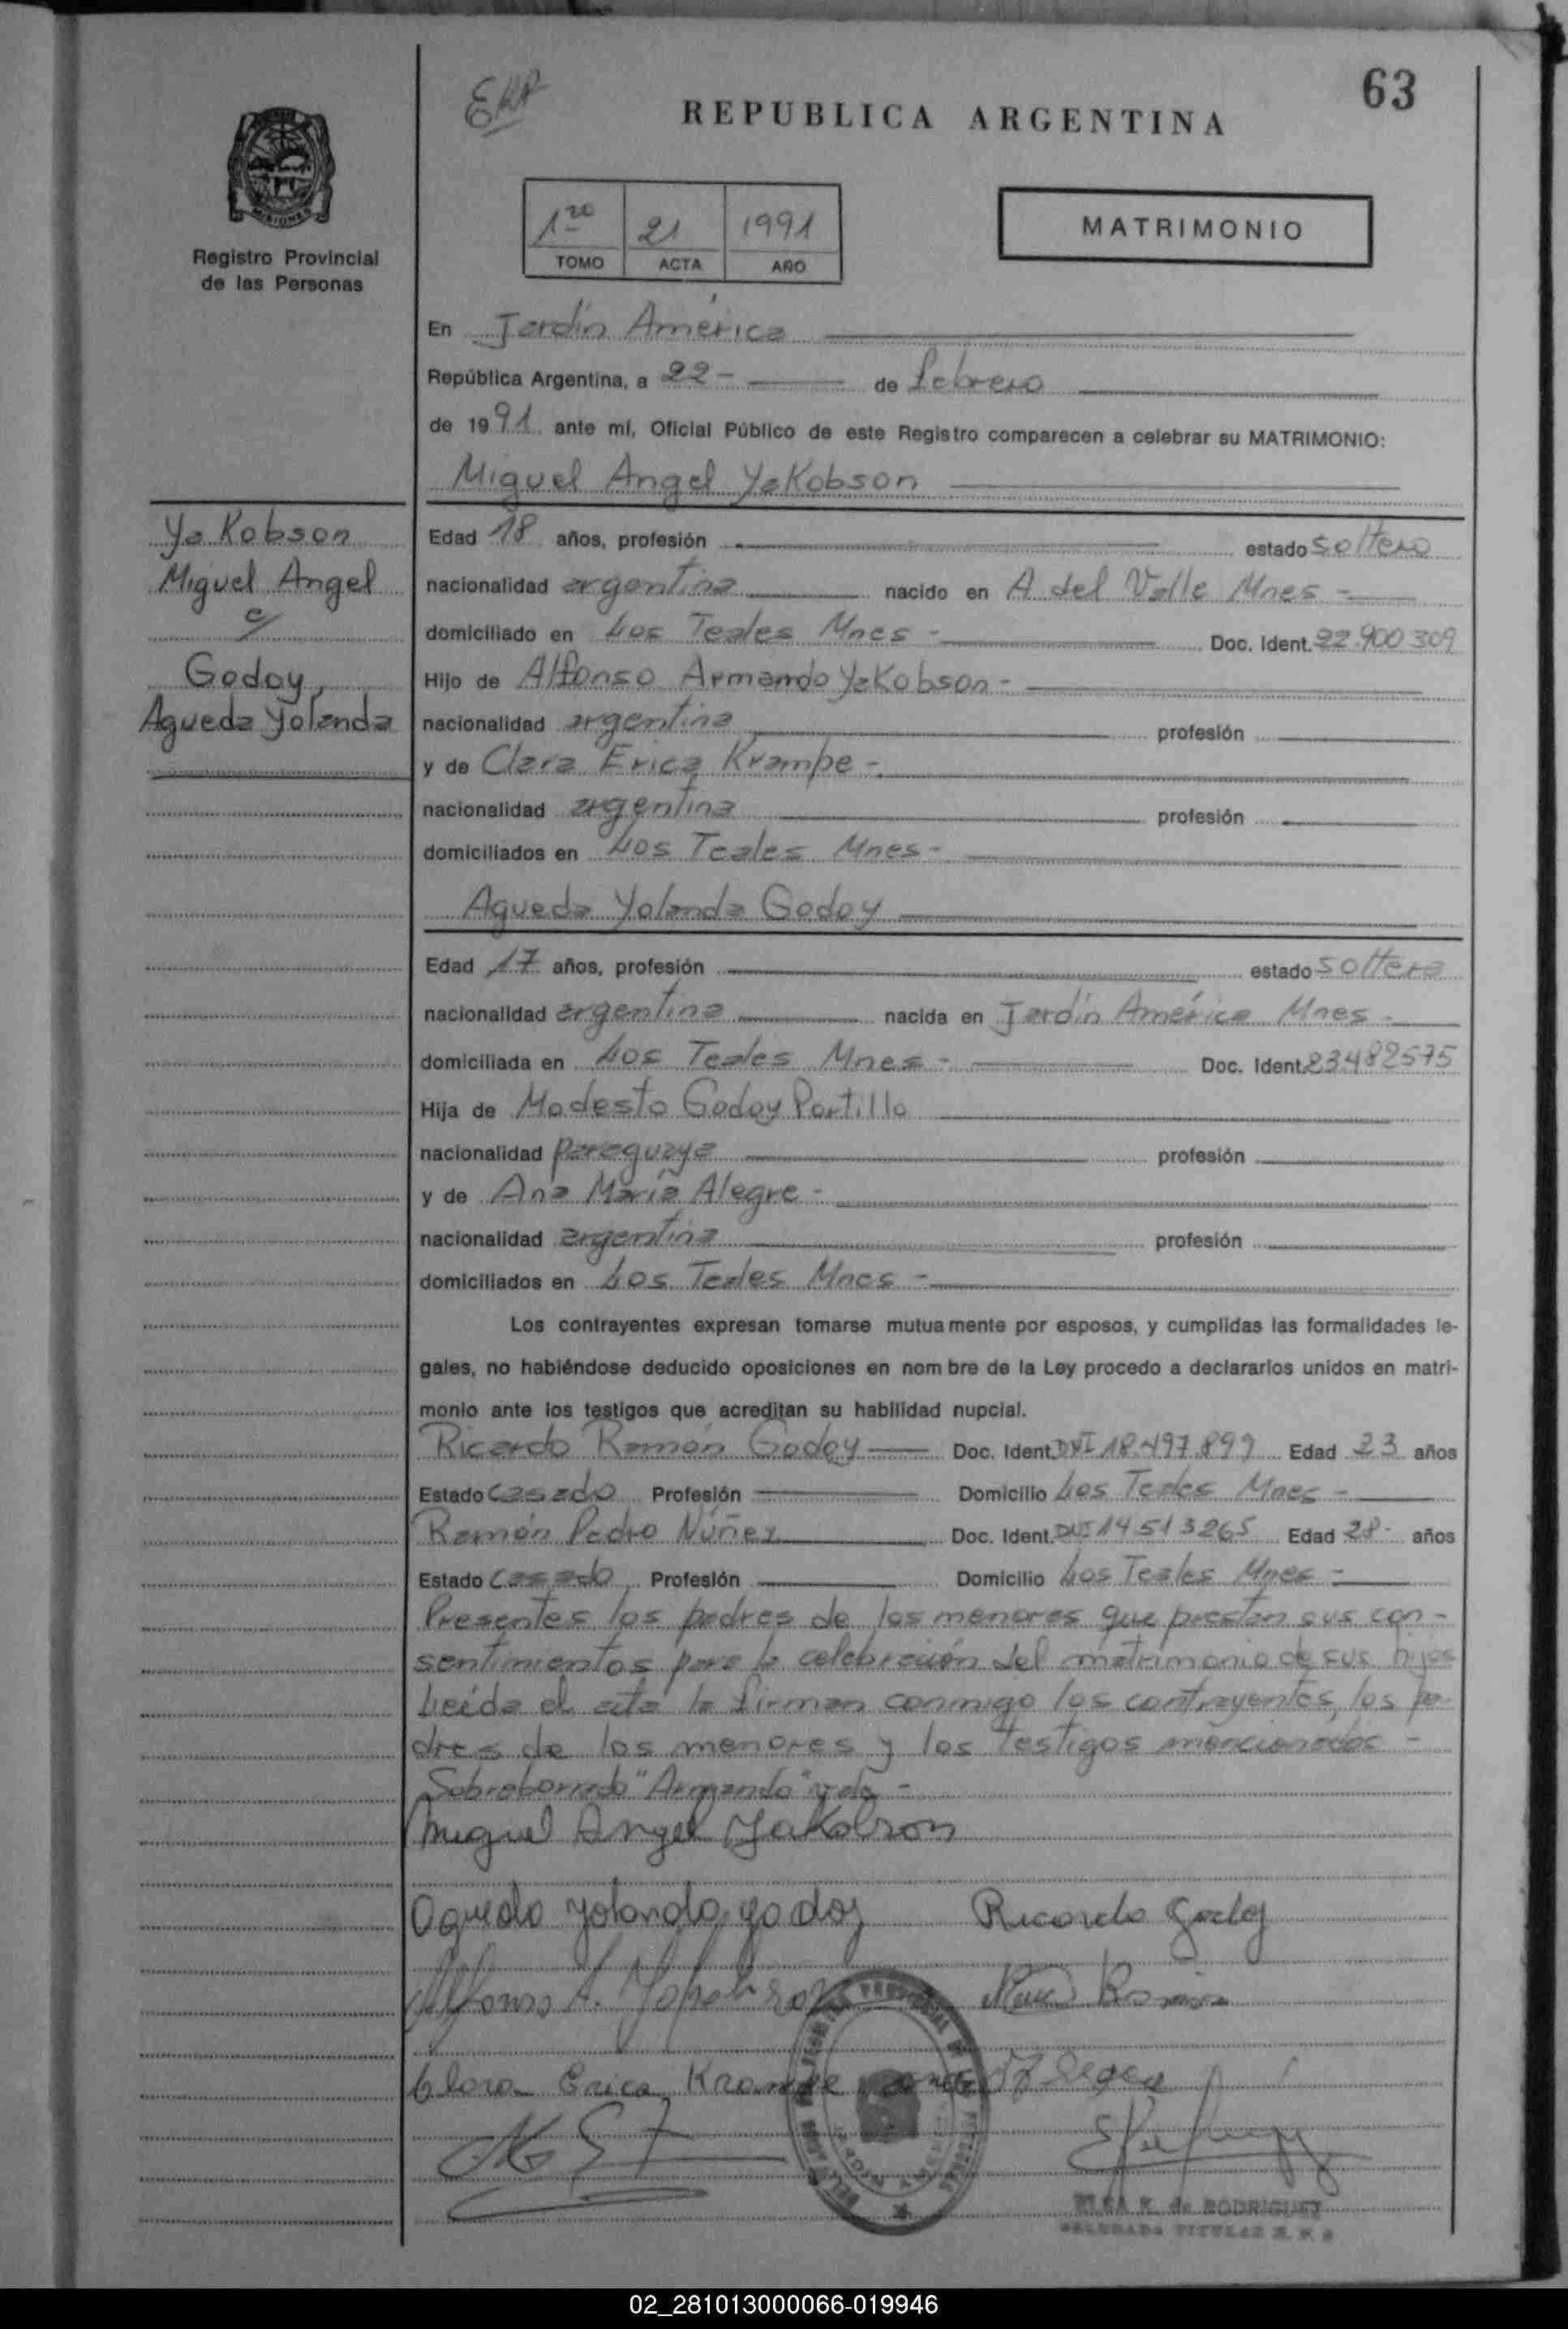 63
ERA
REPUBLICA ARGENTINA
MISIONES
Registro Provincial
de las Personas
1ro 21 1991
TOMO ACTA AÑO
MATRIMONIO
En Jardín América
República Argentina, a 22- de febrero
de 1991 ante mí, Oficial Público de este Registro comparecen a celebrar su MATRIMONIO:
Miguel Angel Yakobson
Yakobson
Miguel Angel
c/
Godoy,
Agueda Yolanda
Edad 18 años, profesión estado soltero
nacionalidad argentina nacido en A del Valle Mnes -
domiciliado en Los Teales Mnes - Doc. Ident. 22.900 309
Hijo de Alfonso Armando Yakobson -
nacionalidad argentina profesión
y de Clara Erica Krampe -
nacionalidad argentina profesión
domiciliados en Los Teales Mnes -
Agueda Yolanda Godoy
Edad 17 años, profesión estado soltera
nacionalidad argentina nacida en Jardín América Mnes -
domiciliada en Los Teales Mnes - Doc. Ident. 23482575
Hija de Modesto Godoy Portillo
nacionalidad paraguaya profesión
y de Ana María Alegre -
nacionalidad argentina profesión
domiciliados en Los Teales Mnes -
Los contrayentes expresan tomarse mutuamente por esposos, y cumplidas las formalidades le-
gales, no habiéndose deducido oposiciones en nombre de la Ley procedo a declararlos unidos en matri-
monio ante los testigos que acreditan su habilidad nupcial.
Ricardo Ramón Godoy Doc. Ident. DNI 18.497.899 Edad 23 años
Estado casado Profesión Domicilio Los Teales Mnes -
Ramón Pedro Núñez Doc. Ident. DNI 14513265 Edad 28- años
Estado casado Profesión Domicilio Los Teales Mnes -
Presentes los padres de los menores que prestan sus con-
sentimientos para la celebración del matrimonio de sus hijos
Leída el acta la firman conmigo los contrayentes, los pa-
dres de los menores y los testigos mencionados -
Sobreborrado "Armando" vale -
Miguel Angel Yakobson
Agueda Yolanda godoy Ricardo Godoy
Alfonso A. Yakobson
Clara Erica Krampe
ELSA K. de RODRIGUEZ
DELEGADA TITULAR R. P. P.
02_281013000066-019946